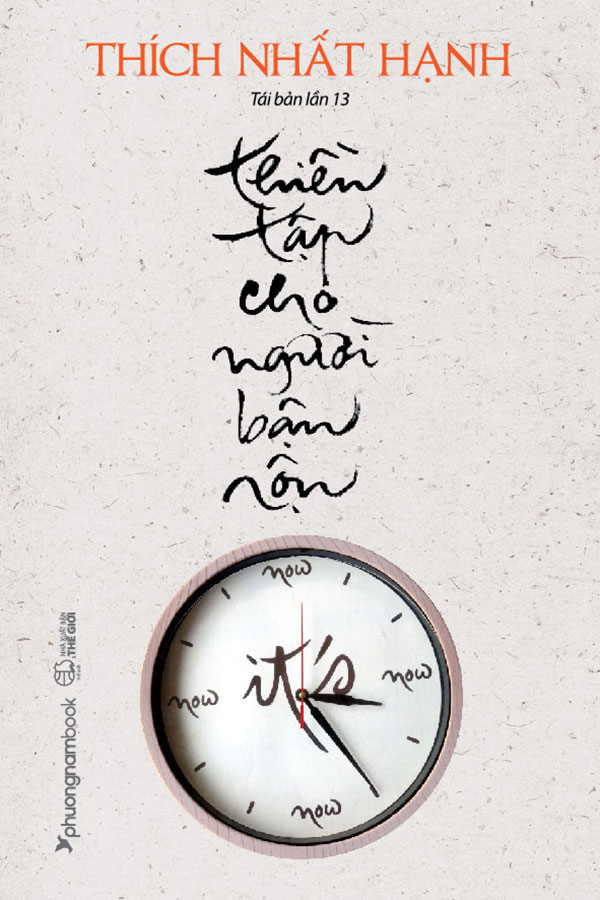 THÍCH NHẤT HẠNH
Tái bản lần 13
thiền
tập
cho
người
bận
rộn
now
it's
now
now
now
NHÀ XUẤT BẢN
THẾ GIỚI
phuongnambook